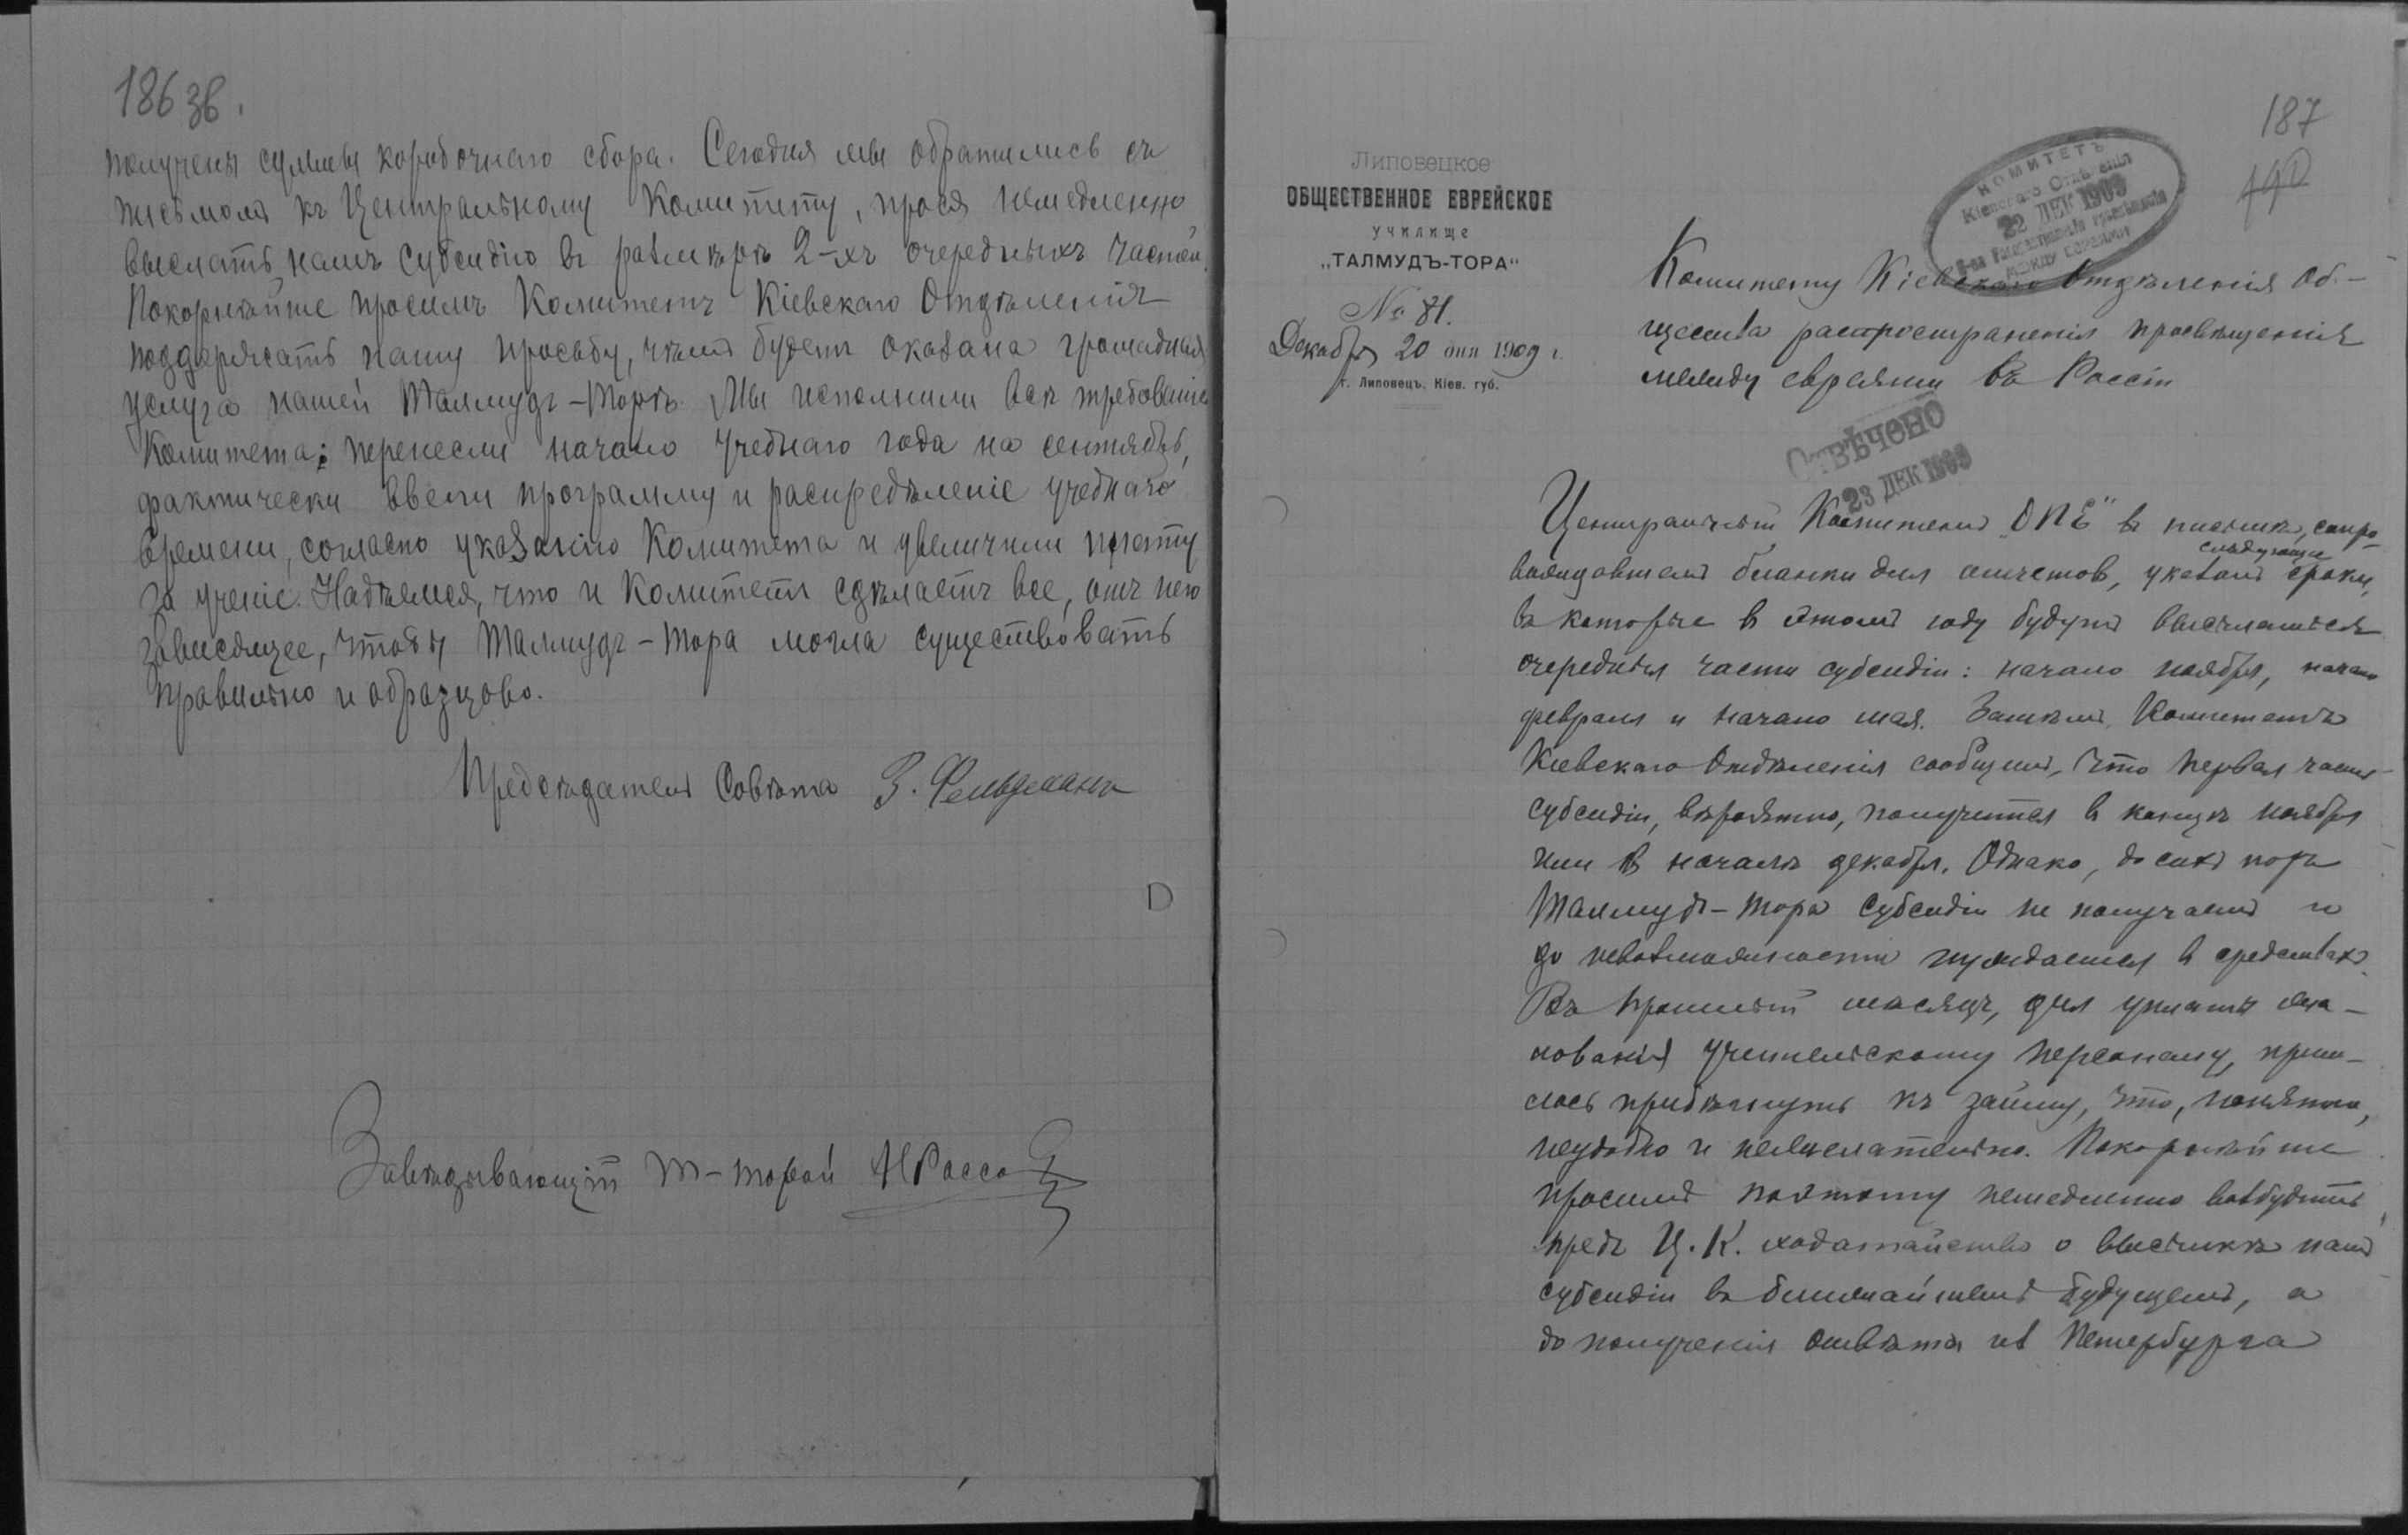 186 зв.
получены суммы коробочнаго сбора. Сегодня мы обратились съ
письмомъ къ Центральному Комитету, прося немедленно
выслать намъ субсидію въ размѣрѣ 2-хъ очередныхъ частей.
Покорнѣйше просимъ Комитетъ Кіевскаго Отдѣленія
поддержать нашу просьбу, чѣмъ будетъ оказана громадная
услуга нашей Талмудъ-Торѣ. Мы исполнили всѣ требованія
Комитета: перенесли начало учебнаго года на сентябрь,
фактически ввели программу и распредѣленіе учебнаго
времени, согласно указанію Комитета и увеличили плату
за ученіе. Надѣемся, что и Комитетъ сдѣлаетъ все, отъ него
зависящее, чтобы Талмудъ-Тора могла существовать
правильно и образцово.
Предсѣдатель Совѣта З. Фельдманъ
Завѣдывающій Т-Торой
187
190
КОМИТЕТЪ
Кіевскаго Отдѣленія
22 ДЕК 1909
О-ва Распространенія просвѣщенія
МЕЖДУ ЕВРЕЯМИ
Липовецкое
ОБЩЕСТВЕННОЕ ЕВРЕЙСКОЕ
училище
„ТАЛМУДЪ-ТОРА“
№ 81.
Декабря 20 дня 1909 г.
г. Липовецъ, Кіев. губ.
Комитету Кіевскаго Отдѣленія Об-
щества распространенія просвѣщенія
между евреями въ Россіи
ОТВѢЧЕНО
23 ДЕК 1909
Центральный Комитетъ „ОПЕ" въ письмѣ, сопро-
вождавшемъ бланки для отчетов, указалъ следующіе сроки,
въ которые в этомъ году будутъ высылаться
очередныя части субсидіи: начало ноября, начало
февраля и начало мая. Затѣмъ, Комитетъ
Кіевскаго Отдѣленія сообщилъ, что первая часть
субсидіи, вѣроятно, получится в концѣ ноября
или в началѣ декабря. Однако, до сихъ поръ
Талмудъ-Тора субсидіи не получаетъ и
до невозможности нуждается в средствахъ.
Въ прошлый мѣсяцъ, для уплаты жа-
лованія учительскому персоналу, приш-
лось прибѣгнуть къ займу, что, понятно,
неудобно и нежелательно. Покорнѣйше
просимъ поэтому немедленно возбудить
предъ Ц. К. ходатайство о высылкѣ намъ
субсидіи въ ближайшемъ будущемъ, а
до полученія отвѣта из Петербурга